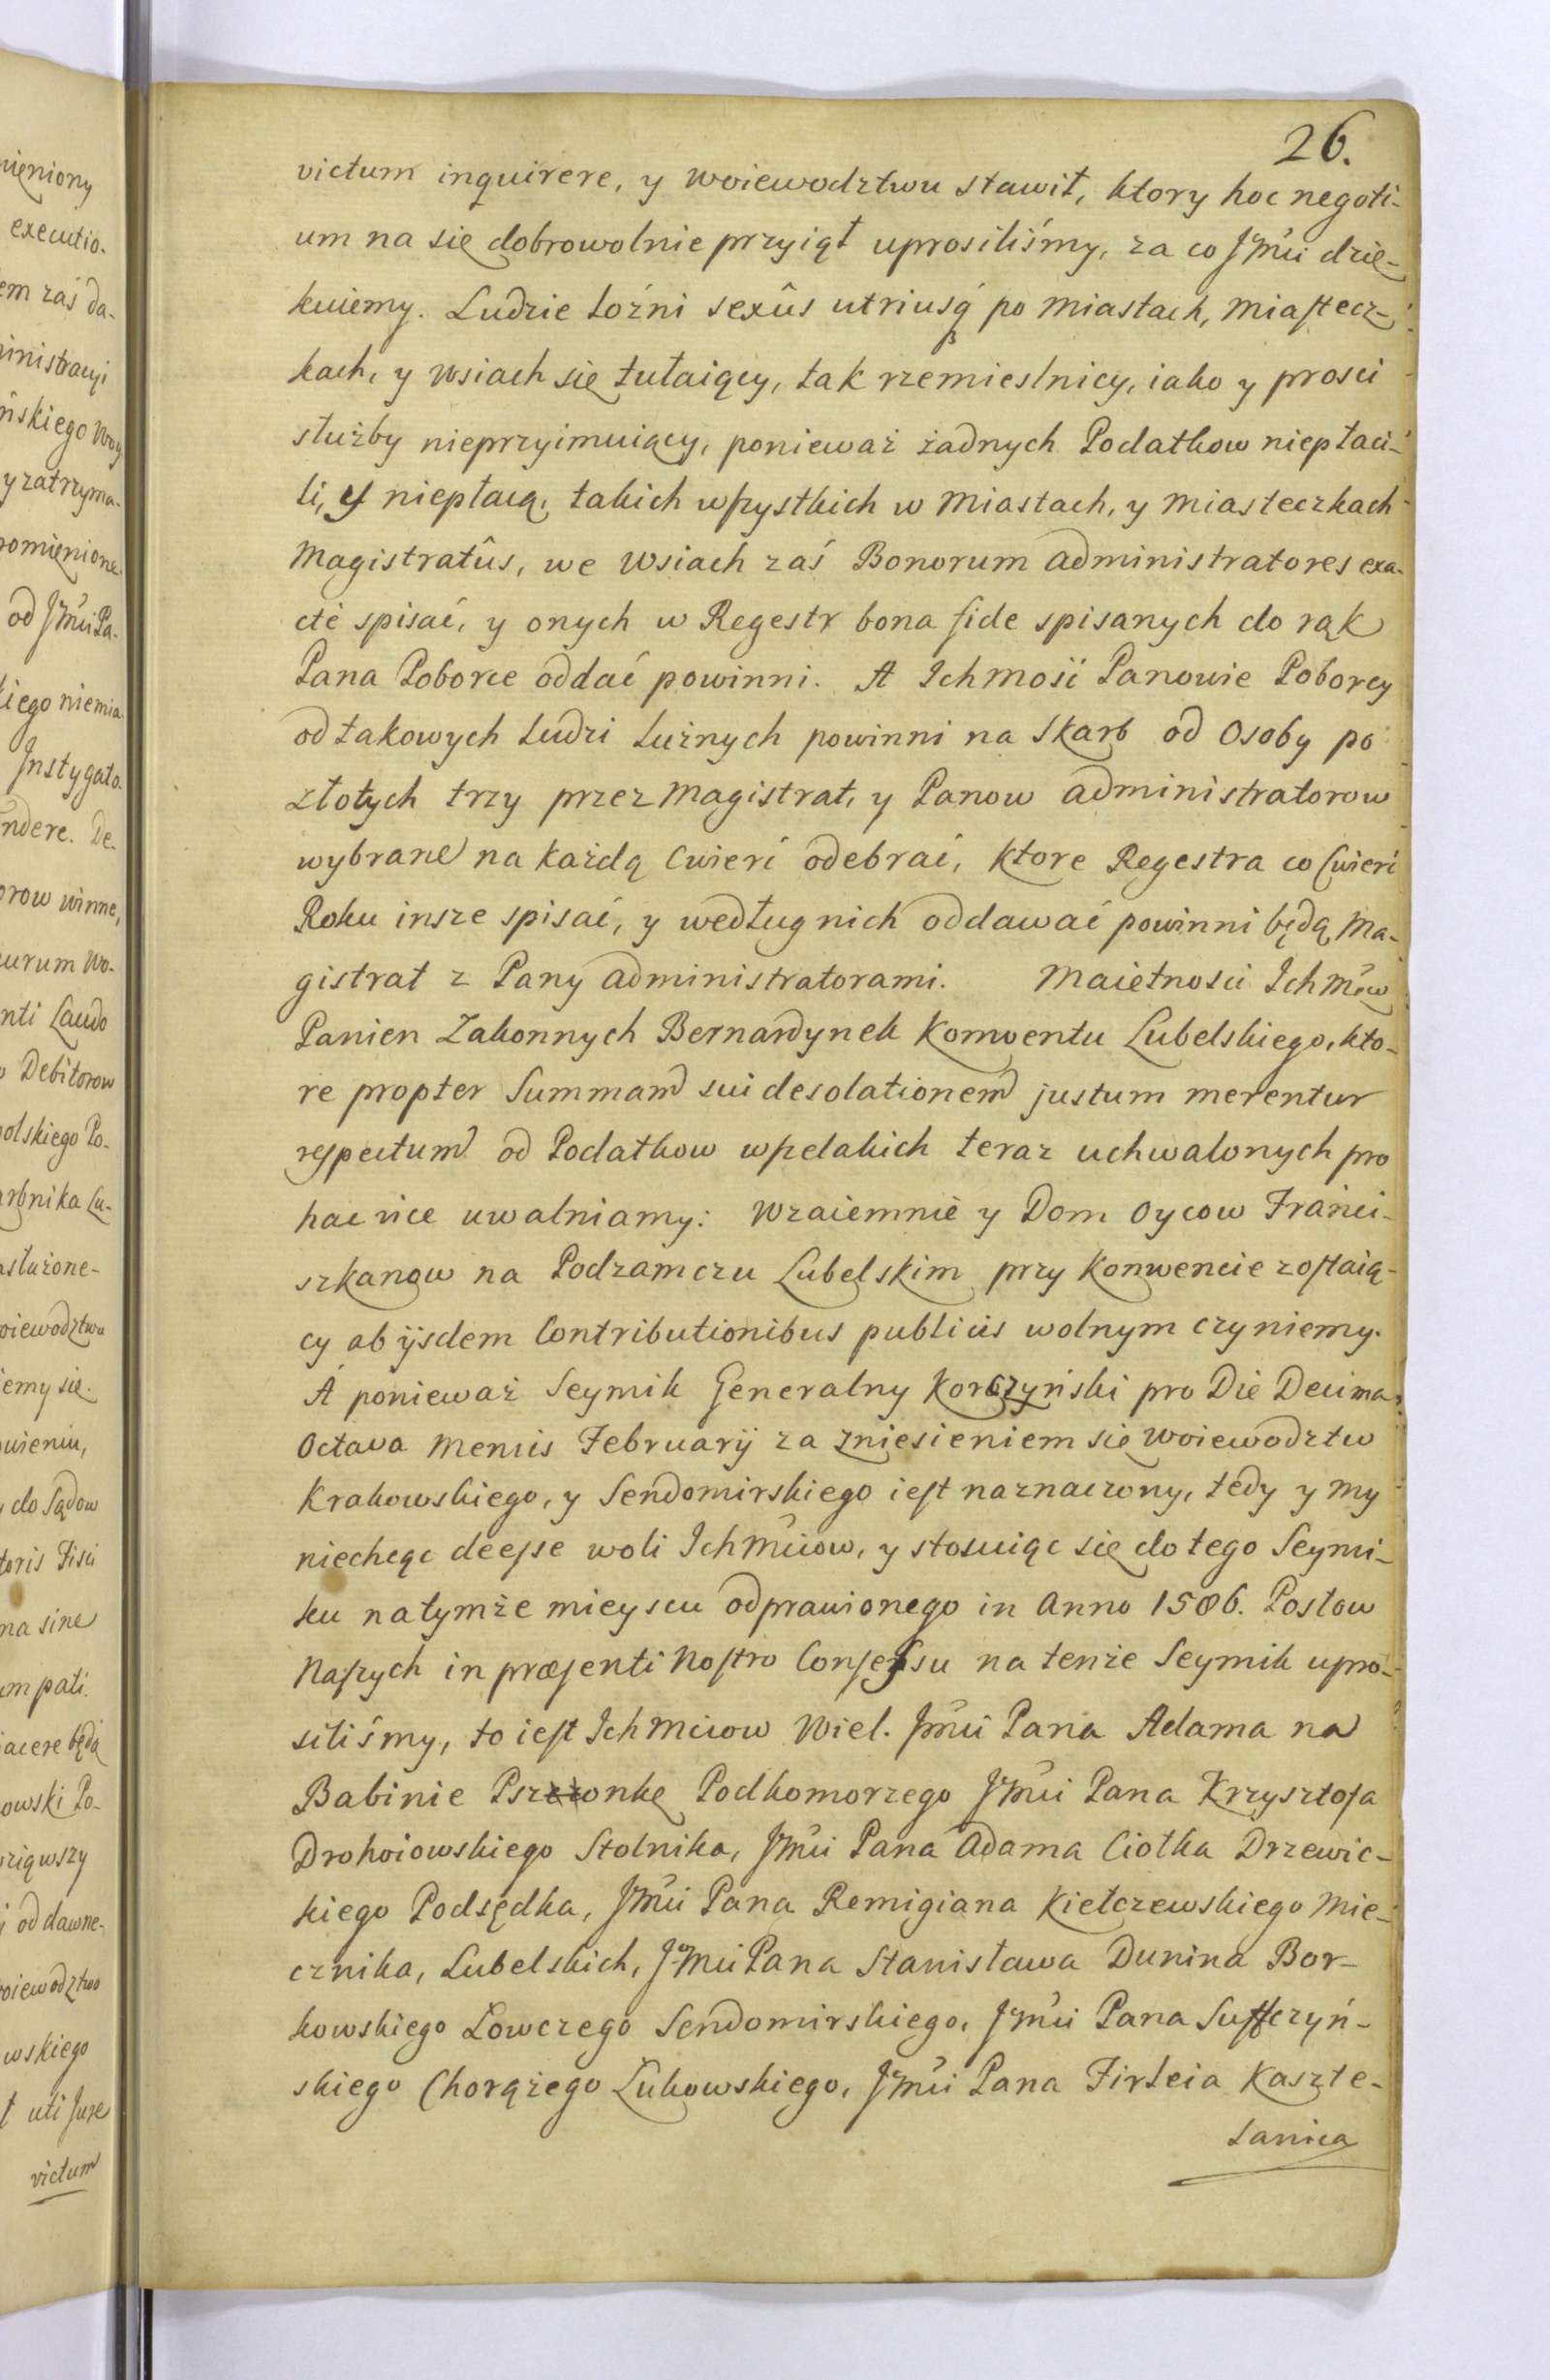 26.
victum inquirere, y woiewodztwu stawił, ktory hoc negoti-
um na się dobrowolnie przyiął uprosiliśmy, za co Jmći dzię-
kuiemy. Ludzie loźni sexûs utriusq̀ po miastach, miastecz-
kach, y wsiach się tułaiący, tak rzemieslnicy, iako y prosci
służby nieprzyimuiący, ponieważ żadnych Podatkow niepłaci-
li, y niepłacą, takich wszystkich w miastach, y miasteczkach
Magistratûs, we wsiach zaś Bonorum administratores exa-
ctè spisać, y onych w Regestr bona fide spisanych do rąk
Pana Poborce oddać powinni. A Ichmość Panowie Poborcy
od takowych ludzi luźnych powinni na Skarb od Osoby po
złotych trzy przez Magistrat, y Panow administratorow
wybrane na każdą Cwierć odebrać, ktore Regestra co Cwierć
Roku insze spisać, y według nich oddawać powinni będą Ma-
gistrat z Pany administratorami. Maiętnosci Ichmćw
Panien Zakonnych Bernardynek Konwentu Lubelskiego, kto-
re propter Summam sui desolationem justum merentur
respectum od Podatkow wszelakich teraz uchwalonych pro
hac vice uwalniamy: wzaiemnie y Dom Oycow Franci-
szkanow na Podzamczu Lubelskim przy Konwencie zostaią-
cy ab ijsdem Contributionibus publicis wolnym czyniemy.
A ponieważ Seymik Generalny Korczyński pro Die Decima
Octava Mensis Februarij za zniesieniem się woiewodztw
Krakowskiego, y Sendomirskiego iest naznaczony, tedy y my
niechcąc deesse woli Ichmćiow, y stosuiąc się do tego Seymi-
ku na tymże mieyscu odprawionego in Anno 1586. Posłow
Naszych in præsenti Nostro Consessu na tenże Seymik upro-
siliśmy, to iest Ichmciow Wiel. Jmći Pana Adama na
Babinie Pszzonkę Podkomorzego Jmći Pana Krzysztofa
Drohoiowskiego Stolnika, Jmći Pana Adama Ciołka Drzewic-
kiego Podsędka, Jmći Pana Remigiana Kiełczewskiego Mie-
cznika, Lubelskich, Jmći Pana Stanisława Dunina Bor-
kowskiego Łowczego Sendomirskiego, Jmći Pana Suffczyń-
skiego Chorążego Łukowskiego, Jmći Pana Firleia Kaszte-
lanica